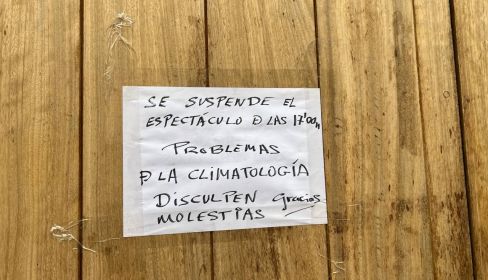 SE SUSPENDE EL
ESPECTÁCULO D LAS 17'00h
PROBLEMAS
D LA CLIMATOLOGÍA
DISCULPEN gracias
MOLESTIAS